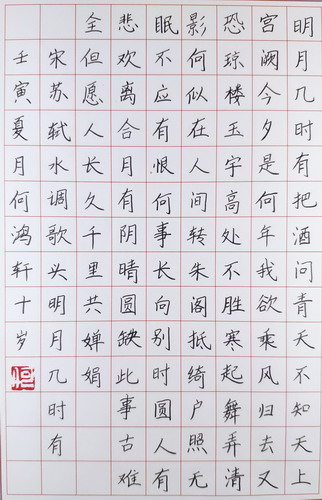 明月几时有把酒问青天不知天上
宫阙今夕是何年我欲乘风归去又
恐琼楼玉宇高处不胜寒起舞弄清
影何似在人间转朱阁抵绮户照无
眠不应有恨何事长向别时圆人有
悲欢离合月有阴晴圆缺此事古难
全但愿人长久千里共婵娟
宋苏轼水调歌头明月几时有
壬寅夏月何鸿轩十岁